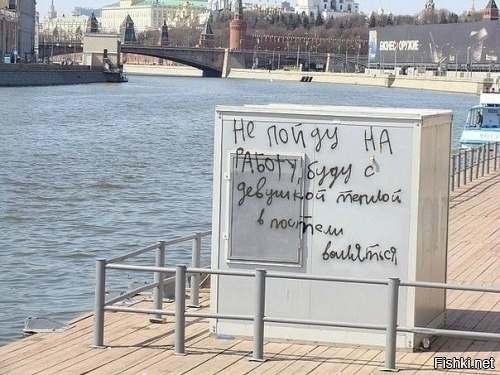 БИЗНЕС ОРУЖИЕ
НЕ ПОЙДУ НА
РАБОТУ, БУДУ С
девушкой теплой
в постели
валяться
Fishki.net